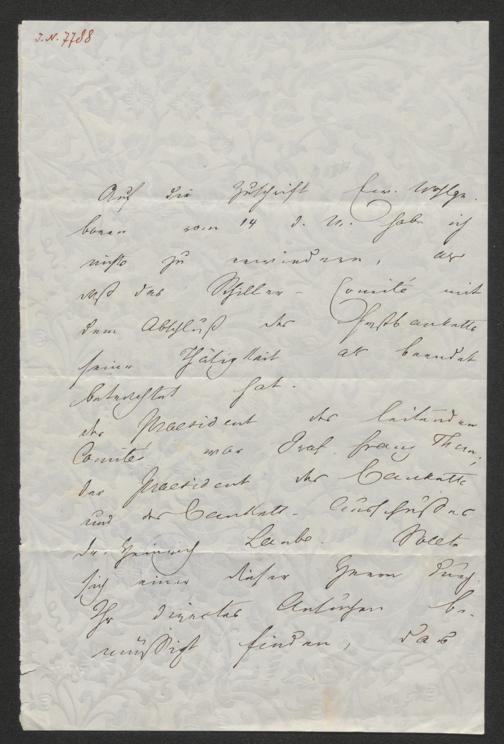 J.N. 7788
Auf die Zuschrift Euer Wohlge-
boren vom 14 d. M. habe ich
nichts zu erwiedern, als
daß das Schiller-Comité mit
dem Abschluß des Festbanketts
seine Thätigkeit als beendet
betrachtet hat.
Der Praesident des leitenden
Comités war Graf Franz Thun,
der Praesident des Banketts
und des Bankett-Ausschußes
Dr. Heinrich Laube. Sollte
sich einer dieser Herren durch
Ihr directes Ansuchen be-
müssigt finden, das